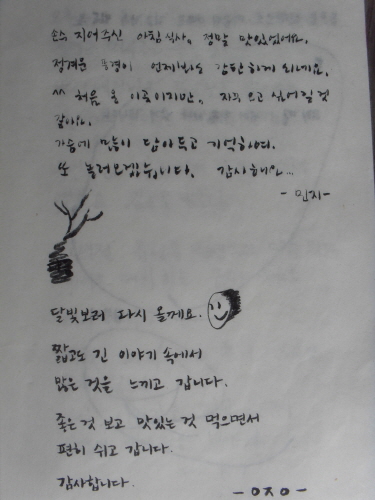 손수 지어주신 아침식사,, 정말 맛있었어요.
정겨운 풍경이 언제봐도 감탄하게 되네요.
^^ 처음 온 이곳이지만,, 자꾸 오고 싶어질 것
같아요.
가슴에 많이 담아두고 기억하며.
또 놀러오겠습니다. 감사해요...
- 민지-
달빛보러 다시 올게요.
짧고도 긴 이야기 속에서
많은 것을 느끼고 갑니다.
좋은 것 보고 맛있는 것 먹으면서
편히 쉬고 갑니다.
감사합니다.
- ㅇㅈㅇ -